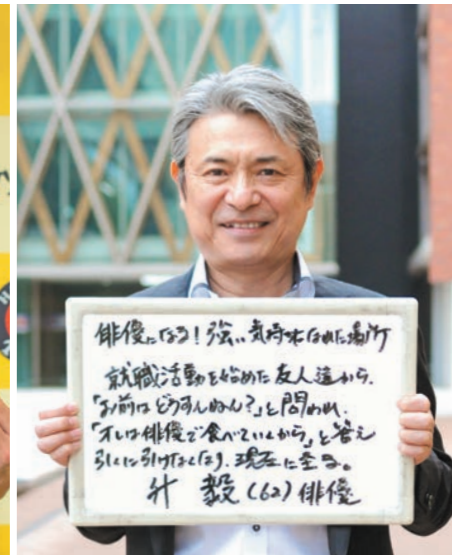 俳優になる!強い気持になれた場所
就職活動を始めた友人達から、
「お前はどうすんねん?」と問われ、
「オレは俳優で食べていくから」と答え
引くに引けなくなり、現在に至る。
升 毅(62)俳優